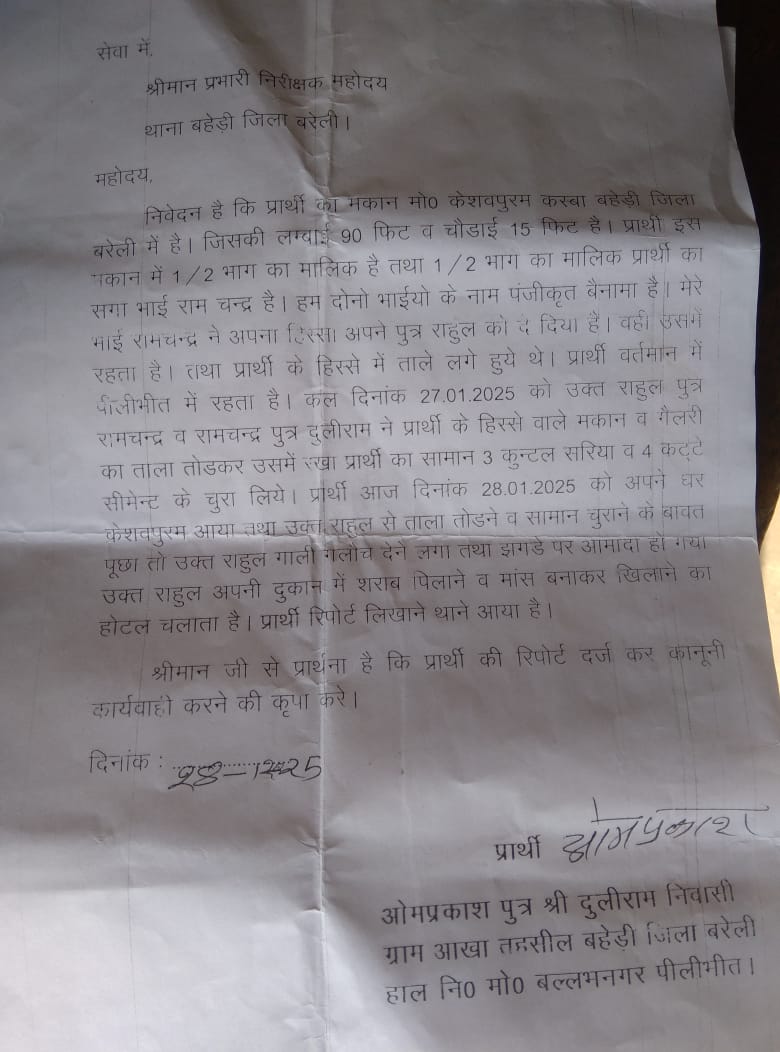 सेवा में,
श्रीमान प्रभारी निरीक्षक महोदय
थाना बहेड़ी जिला बरेली।
महोदय,
निवेदन है कि प्रार्थी का मकान मो0 केशवपुरम कस्बा बहेड़ी जिला
बरेली में है। जिसकी लम्बाई 90 फिट व चौडाई 15 फिट है। प्रार्थी इस
मकान में 1/2 भाग का मालिक है तथा 1/2 भाग का मालिक प्रार्थी का
सगा भाई राम चन्द्र है। हम दोनो भाईयो के नाम पंजीकृत बैनामा है। मेरे
भाई रामचन्द्र ने अपना हिस्सा अपने पुत्र राहुल को दे दिया है। वही उसमें
रहता है। तथा प्रार्थी के हिस्से में ताले लगे हुये थे। प्रार्थी वर्तमान में
पीलीभीत में रहता है। कल दिनांक 27.01.2025 को उक्त राहुल पुत्र
रामचन्द्र व रामचन्द्र पुत्र दुलीराम ने प्रार्थी के हिस्से वाले मकान व गैलरी
का ताला तोडकर उसमें रखा प्रार्थी का सामान 3 कुन्टल सरिया व 4 कट्टे
सीमेन्ट के चुरा लिये। प्रार्थी आज दिनांक 28.01.2025 को अपने घर
केशवपुरम आया तथा उक्त राहुल से ताला तोडने व सामान चुराने के बावत
पूछा तो उक्त राहुल गाली गलौच देने लगा तथा झगडे पर आमादा हो गया
उक्त राहुल अपनी दुकान में शराब पिलाने व मांस बनाकर खिलाने का
होटल चलाता है। प्रार्थी रिपोर्ट लिखाने थाने आया है।
श्रीमान जी से प्रार्थना है कि प्रार्थी की रिपोर्ट दर्ज कर कानूनी
कार्यवाही करने की कृपा करे।
दिनांक :
प्रार्थी ओमप्रकाश
ओमप्रकाश पुत्र श्री दुलीराम निवासी
ग्राम आखा तहसील बहेड़ी जिला बरेली
हाल नि0 मो0 बल्लभनगर पीलीभीत।